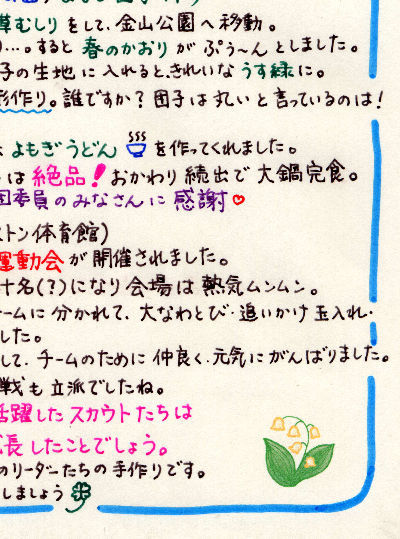 草むしりをして、金山公園へ移動。
…。すると春のかおりがぷぅ〜んとしました。
子の生地に入れると、きれいなうす緑に。
形作り。誰ですか？団子は丸いと言っているのは！
よもぎうどんを作ってくれました。
は絶品！おかわり続出で大鍋完食。
団委員のみなさんに感謝♡
ストン体育館)
運動会が開催されました。
十名(?)になり会場は熱気ムンムン。
ームに分かれて、大なわとび・追いかけ玉入れ・
した。
して、チームのために仲良く、元気にがんばりました。
戦も立派でしたね。
活躍したスカウトたちは
長したことでしょう。
のリーダーたちの手作りです。
しましょう